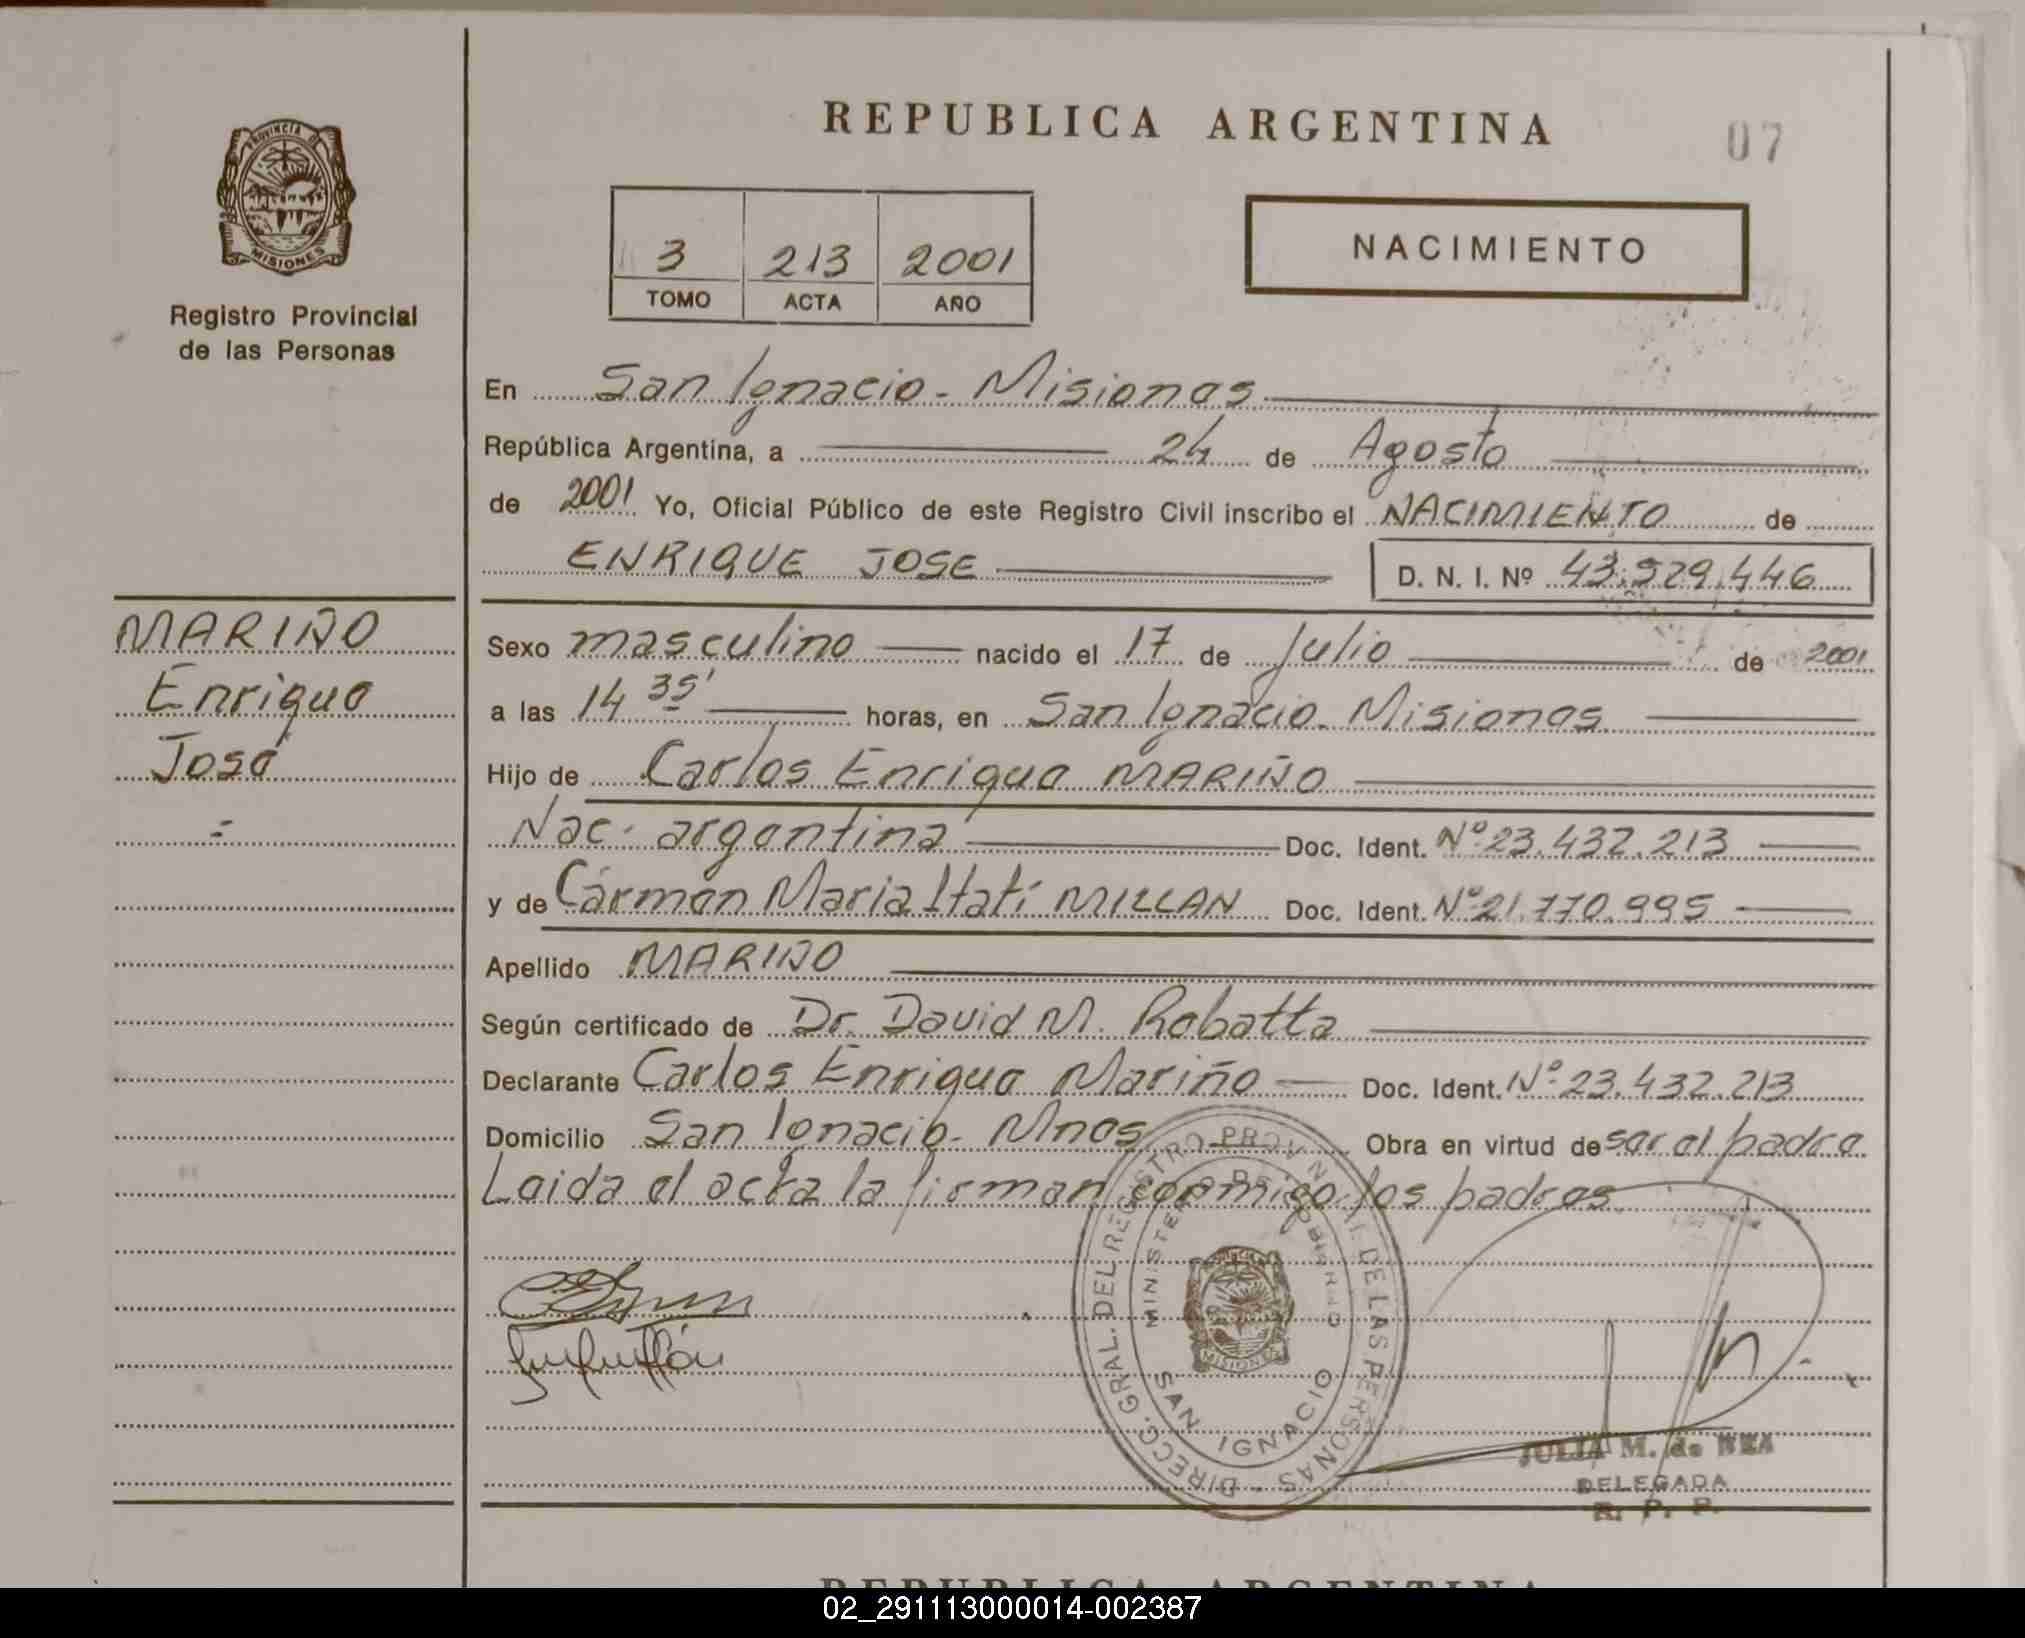 REPUBLICA ARGENTINA
07
PROVINCIA DE
MISIONES
Registro Provincial
de las Personas
3 213 2001
TOMO ACTA AÑO
NACIMIENTO
En San Ignacio - Misiones
República Argentina, a 24 de Agosto
de 2001 Yo, Oficial Público de este Registro Civil inscribo el NACIMIENTO de
ENRIQUE JOSE D. N. I. Nº 43.529.446
MARIÑO
Enrique
José
Sexo masculino nacido el 17 de Julio de 2001
a las 14 35' horas, en San Ignacio - Misiones
Hijo de Carlos Enrique MARIÑO
Nac. argentina Doc. Ident. Nº 23.432.213
y de Cármen Maria Itatí MILLAN Doc. Ident. Nº 21.770.995
Apellido MARIÑO
Según certificado de Dr. David M. Robatta
Declarante Carlos Enrique Mariño Doc. Ident. Nº 23.432.213
Domicilio San Ignacio - Mnes Obra en virtud de ser el padre
Leida el acta la firman conmigo los padres
DIRECC. GRAL. DEL REGISTRO PROVINCIAL DE LAS PERSONAS
MINISTERIO DE GOBIERNO
MISIONES
SAN IGNACIO
JULIA M. de
DELEGADA
R. P. P.
REPUBLICA ARGENTINA
02_291113000014-002387